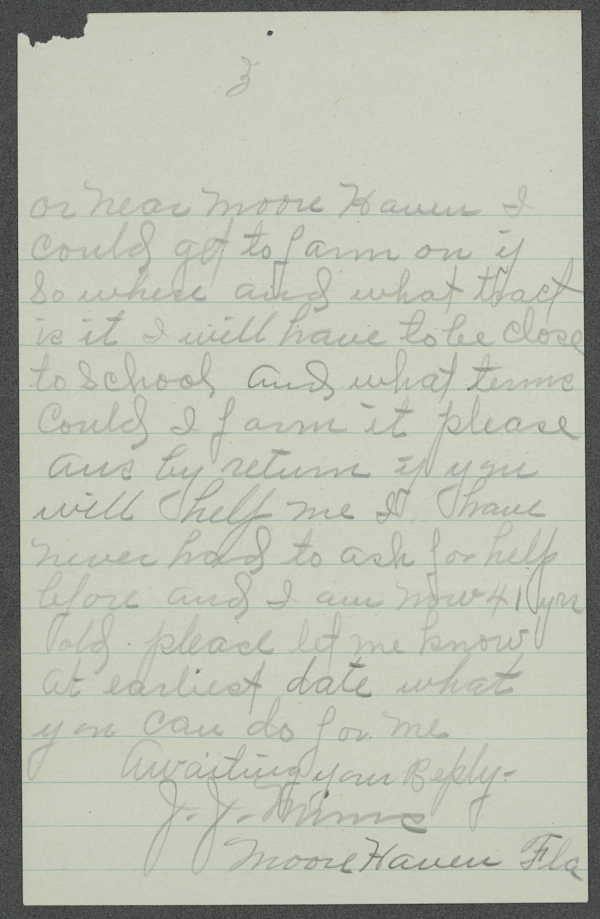 3
or near Moore Haven I
could get to farm on if
So where and what tract
is it I will have to be close
to School and what terms
Could I farm it please
ans by return if you
will help me I have
never had to ask for help
before and I am now 41 yrs
old. please let me know
at earliest date what
you can do for me
Awaiting your Reply-
J. J. Mims
Moore Haven Fla